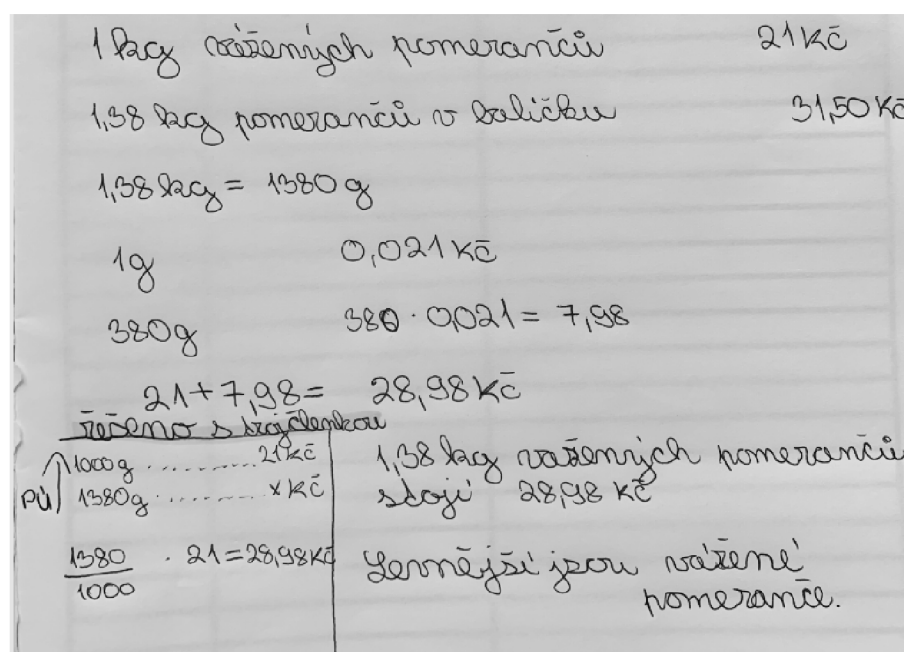 1 kg vážených pomerančů 21 Kč
1,38 kg pomerančů v balíčku 31,50 Kč
1,38 kg = 1380 g
1g 0,021 Kč
380g 380 · 0,021 = 7,98
21 + 7,98 = 28,98 Kč
řešeno s trojčlenkou
PÚ 1000g ........... 21 Kč
1380g ........... x Kč
1380/1000 · 21 = 28,98 Kč
1,38 kg vážených pomerančů
stojí 28,98 Kč
Levnější jsou vážené
pomeranče.